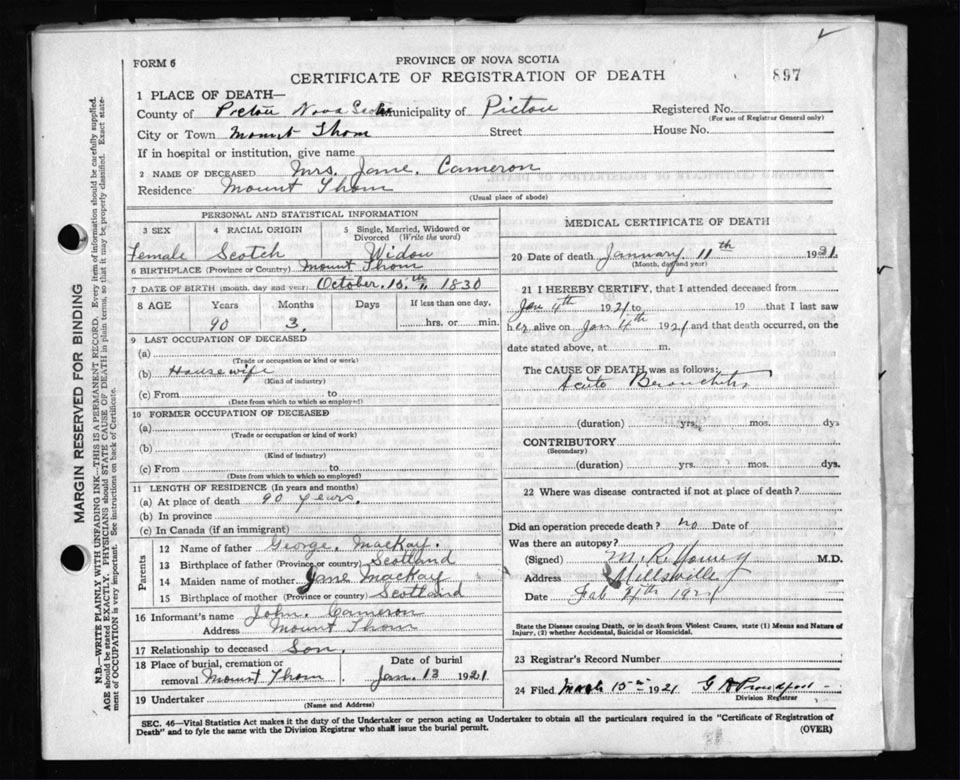 FORM 6
PROVINCE OF NOVA SCOTIA
CERTIFICATE OF REGISTRATION OF DEATH
897
1 PLACE OF DEATH—
County of Pictou Nova Scotia Municipality of Pictou Registered No.
(For use of Registrar General only)
City or Town Mount Thom Street House No.
If in hospital or institution, give name
2 NAME OF DECEASED Mrs. Jane. Cameron
Residence Mount Thom
(Usual place of abode)
PERSONAL AND STATISTICAL INFORMATION
3 SEX 4 RACIAL ORIGIN 5 Single, Married, Widowed or Divorced (Write the word)
Female Scotch Widow
6 BIRTHPLACE (Province or Country) Mount Thom
7 DATE OF BIRTH (month, day and year) October. 15th, 1830
8 AGE Years Months Days If less than one day,
90 3. hrs. or min.
9 LAST OCCUPATION OF DECEASED
(a)
(Trade or occupation or kind or work)
(b) Housewife
(Kind of industry)
(c) From to
(Date from which to which so employed)
10 FORMER OCCUPATION OF DECEASED
(a)
(Trade or occupation or kind of work)
(b)
(Kind of industry)
(c) From to
(Date from which to which so employed)
11 LENGTH OF RESIDENCE (In years and months)
(a) At place of death 90 years.
(b) In province
(c) In Canada (if an immigrant)
Parents
12 Name of father George. MacKay.
13 Birthplace of father (Province or country) Scotland
14 Maiden name of mother Jane MacKay
15 Birthplace of mother (Province or country) Scotland
16 Informant's name John. Cameron
Address Mount Thom
17 Relationship to deceased Son.
18 Place of burial, cremation or Date of burial
removal Mount Thom. Jan. 13 1921
19 Undertaker
(Name and Address)
MEDICAL CERTIFICATE OF DEATH
20 Date of death January 11th 1921.
(Month, day and year)
21 I HEREBY CERTIFY, that I attended deceased from
Jan 4th 1921 to 19 that I last saw
her alive on Jan 4th 1921 and that death occurred, on the
date stated above, at m.
The CAUSE OF DEATH was as follows:
Acute Bronchitis
(duration) yrs. mos. dys
CONTRIBUTORY
(Secondary)
(duration) yrs. mos. dys.
22 Where was disease contracted if not at place of death?
Did an operation precede death? no Date of
Was there an autopsy?
(Signed) M.R. Young M.D.
Address Millsville
Date Feb 4th 1921
State the Disease causing Death, or in death from Violent Causes, state (1) Means and Nature of
Injury, (2) whether Accidental, Suicidal or Homicidal.
23 Registrar's Record Number
24 Filed March 15th 1921 G A Proudfoot
Division Registrar
SEC. 46—Vital Statistics Act makes it the duty of the Undertaker or person acting as Undertaker to obtain all the particulars required in the "Certificate of Registration of
Death" and to fyle the same with the Division Registrar who shall issue the burial permit. (OVER)
MARGIN RESERVED FOR BINDING
N.B.—WRITE PLAINLY WITH UNFADING INK—THIS IS A PERMANENT RECORD. Every item of information should be carefully supplied.
AGE should be stated EXACTLY. PHYSICIANS should STATE CAUSE OF DEATH in plain terms, so that it may be properly classified. Exact state-
ment of OCCUPATION is very important. See instructions on back of Certificate.